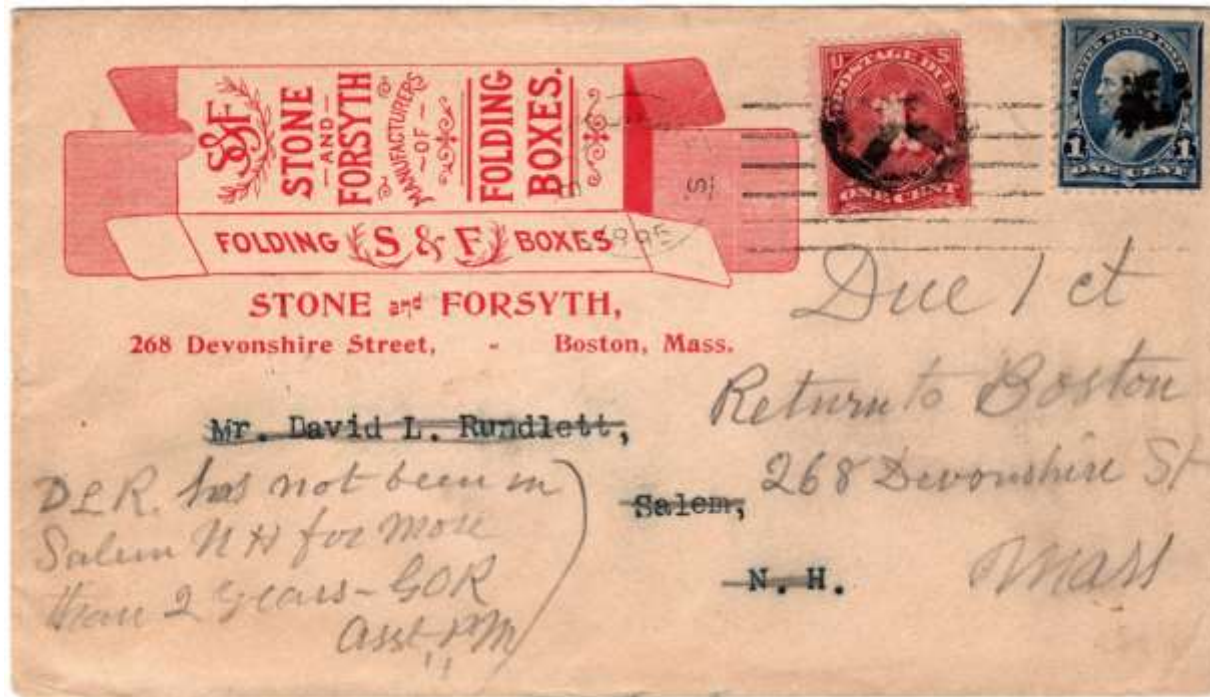 S&F
STONE
AND
FORSYTH
MANUFACTURERS
OF
FOLDING
BOXES.
FOLDING S & F BOXES
STONE and FORSYTH,
268 Devonshire Street, - Boston, Mass.
U S
POSTAGE DUE
ONE CENT
UNITED STATES POSTAGE
1 1
ONE CENT
Due 1 ct
Return to Boston
268 Devonshire St
Mass
Mr. David L. Rundlett,
Salem,
N. H.
DLR. has not been in
Salem N H for more
than 2 years - GOR
Asst. PM